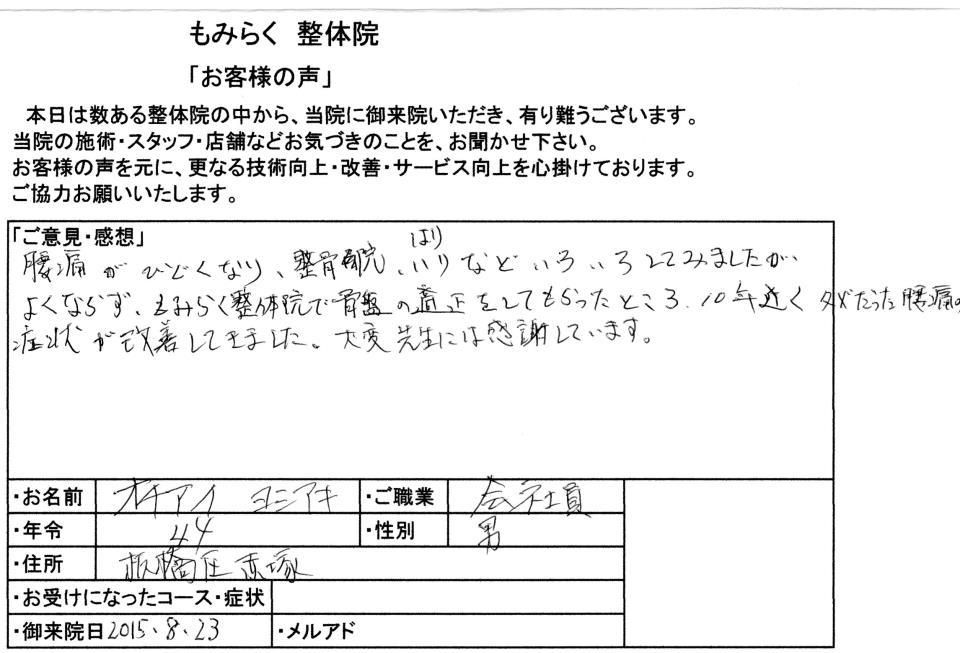 もみらく 整体院
「お客様の声」
本日は数ある整体院の中から、当院に御来院いただき、有り難うございます。
当院の施術・スタッフ・店舗などお気づきのことを、お聞かせ下さい。
お客様の声を元に、更なる技術向上・改善・サービス向上を心掛けております。
ご協力お願いいたします。
「ご意見・感想」
はり
腰痛がひどくなり、整骨院、いりなどいろいろしてみましたが
よくならず、もみらく整体院で骨盤の矯正をしてもらったところ、10年近くダメだった腰痛の
症状が改善してきました。大変先生には感謝しています。
・お名前 オチアイ ヨシアキ ・ご職業 会社員
・年令 44 ・性別 男
・住所 板橋区赤塚
・お受けになったコース・症状
・御来院日 2015.8.23 ・メルアド